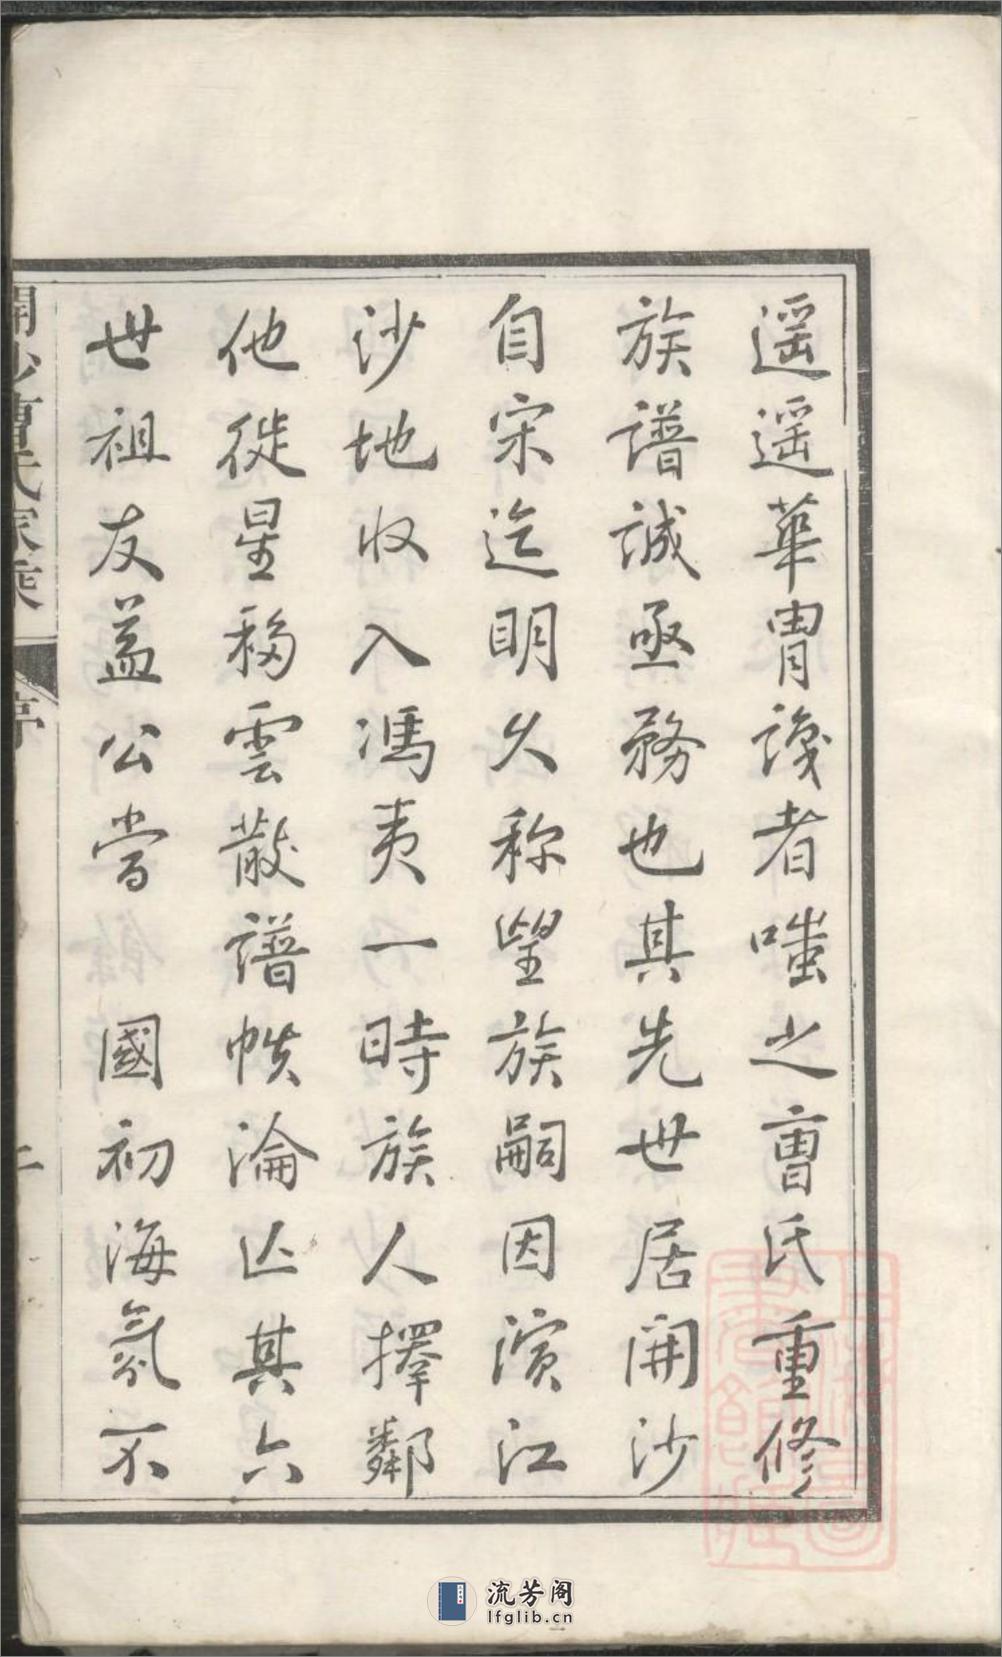 遥遥華胄譏者嗤之曺氏重修
族譜誠亟務也其先世居開沙
自宋迄明久称望族嗣因濱江
沙地收入馮夷一時族人擇鄰
他徙星移雲散譜帙淪亾其六
世祖友益公當 國初海氛不
開沙曹氏家乘
序
流芳阁
lfglib.cn